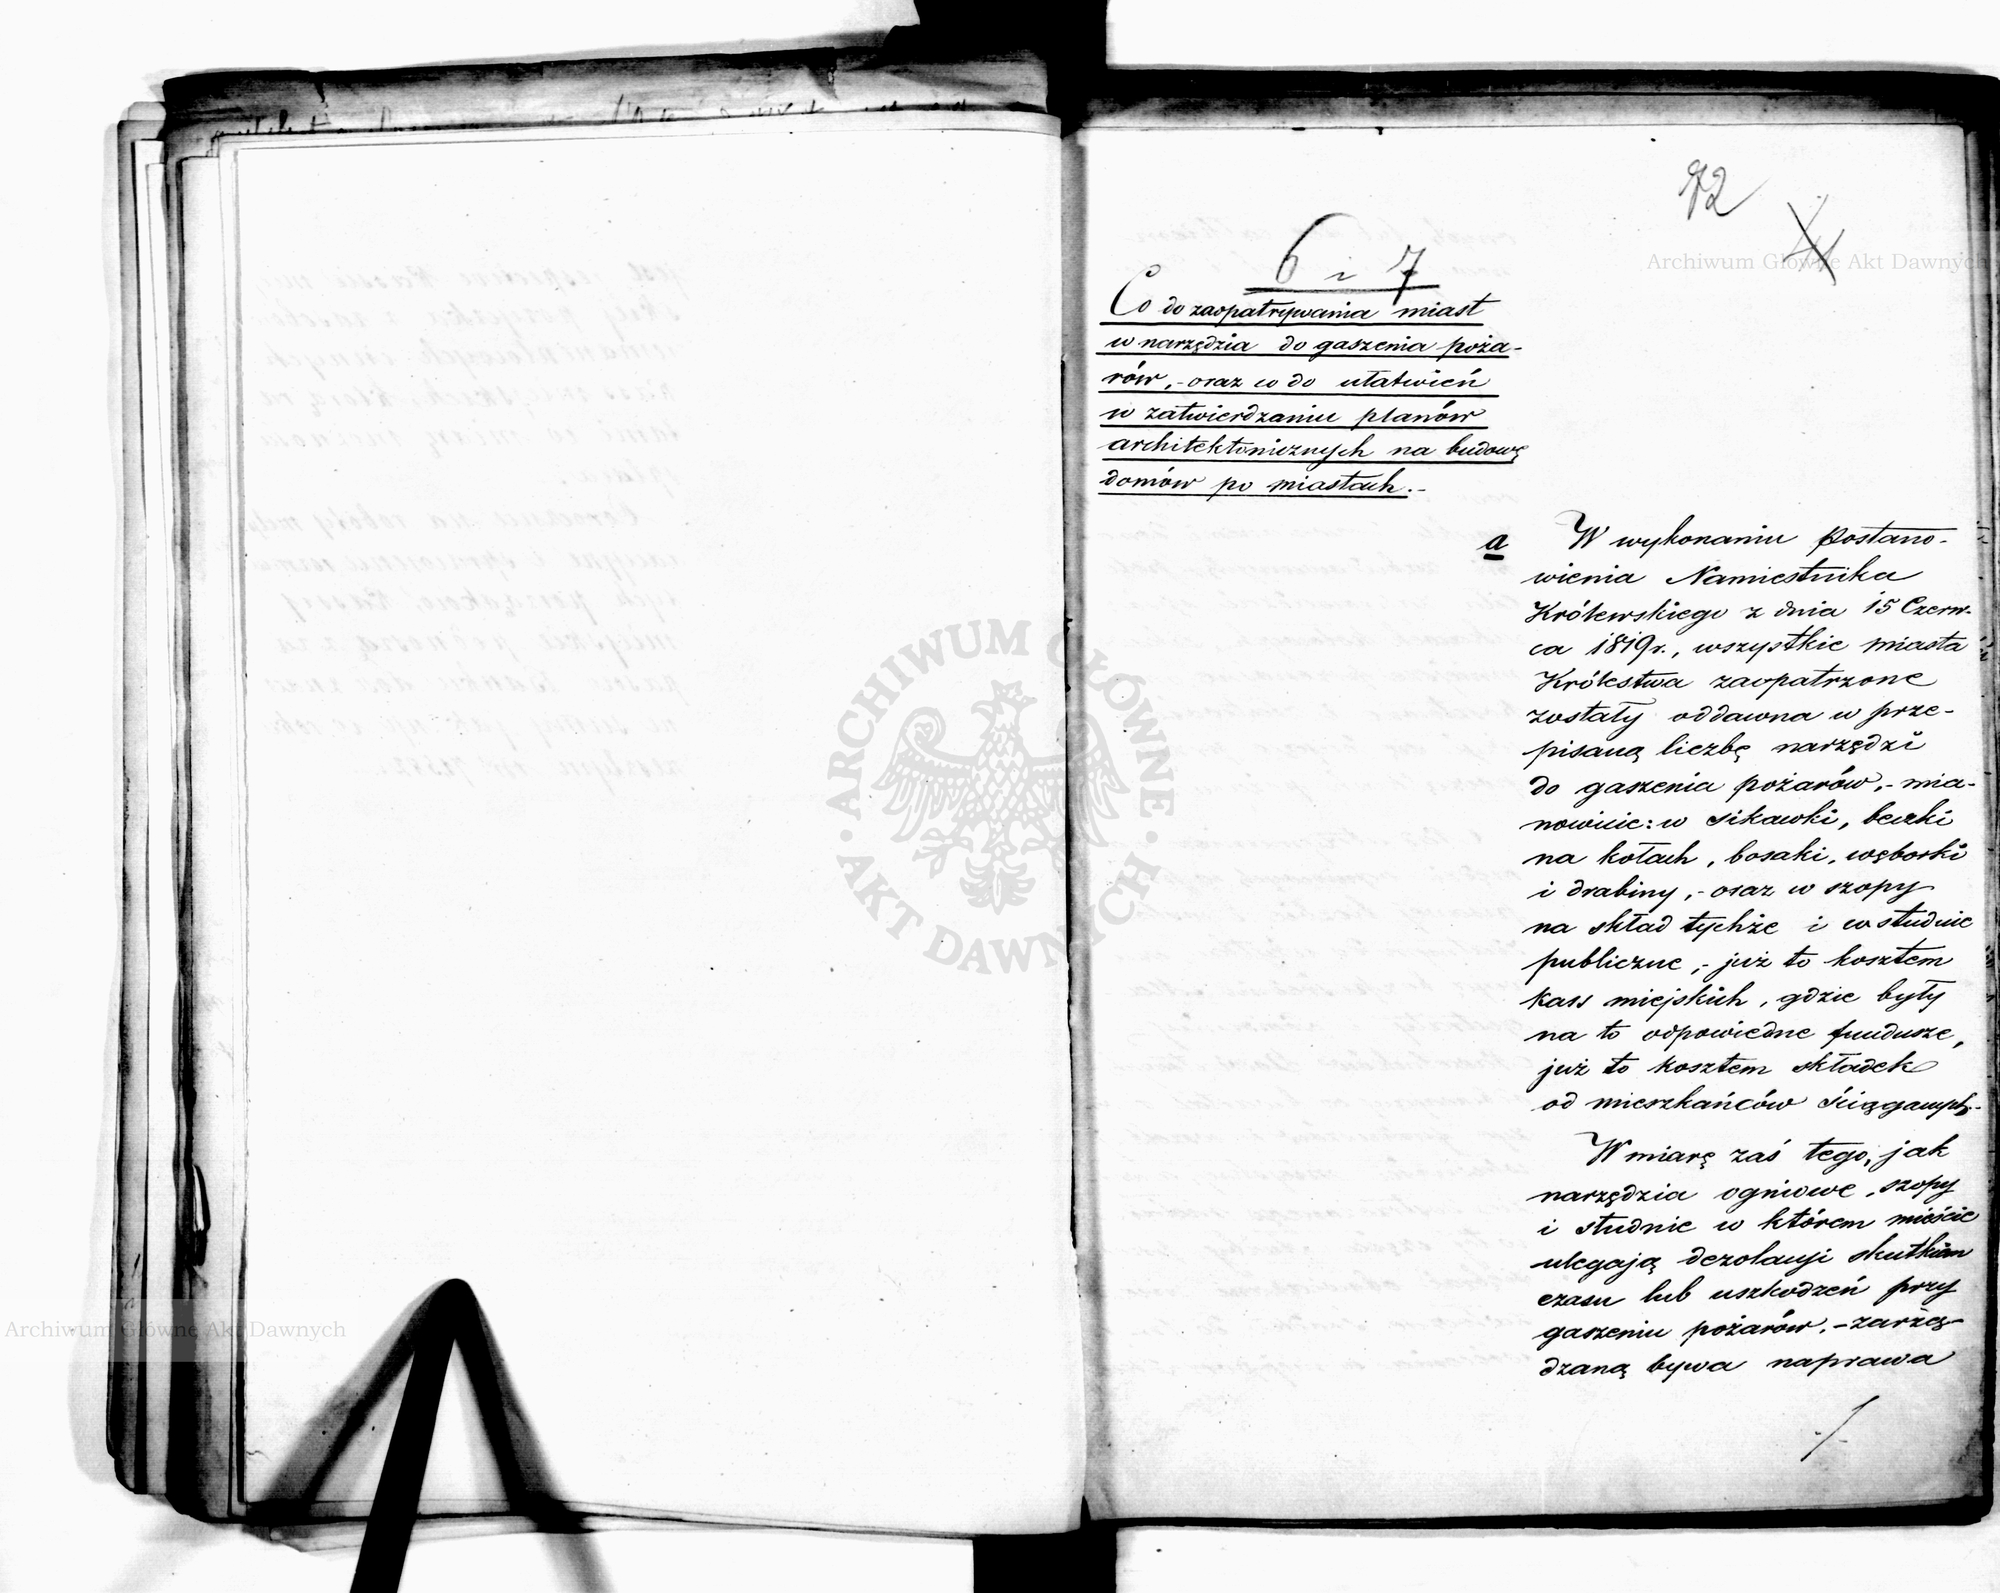 72
6 i 7
Co do zaopatrywania miast
w narzędzia do gaszenia poża-
rów,- oraz co do ułatwień
w zatwierdzaniu planów
architektonicznych na budowę
domów po miastach.-
a W wykonaniu Postano-
wienia Namiestnika
Królewskiego z dnia 15 Czerw-
ca 1819r., wszystkie miasta
Królestwa zaopatrzone
zostały oddawna w prze-
pisaną liczbę narzędzi
do gaszenia pożarów,- mia-
nowicie: w sikawki, beczki
na kołach, bosaki, węborki
i drabiny,- oraz w szopy
na skład tychże i w studnie
publiczne,- już to kosztem
kass miejskich, gdzie były
na to odpowiedne fundusze,
już to kosztem składek
od mieszkańców ściąganych.-
W miarę zaś tego, jak
narzędzia ogniowe, szopy
i studnie w którem mieście
ulegają dezolacyi skutkiem
czasu lub uszkodzeń przy
gaszeniu pożarów,- zarzą-
dzaną bywa naprawa
Archiwum Główne Akt Dawnych
ARCHIWUM GŁÓWNE
AKT DAWNYCH
Archiwum Główne Akt Dawnych